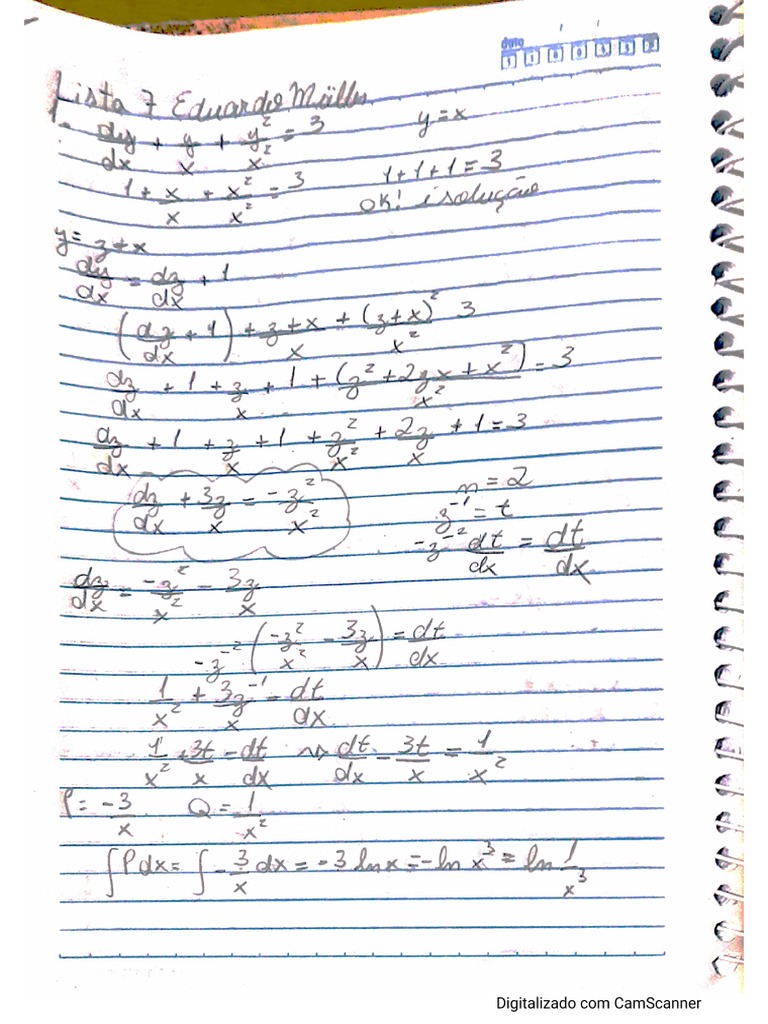 data
Lista 7 Eduardo
dy/dx + y/x + y²/x² = 3 y=x
1 + x/x + x²/x² = 3 1+1+1=3
OK! é solução
y = z+x
dy/dx = dz/dx + 1
(dz/dx + 1) + z+x/x + (z+x)²/x² 3
dz/dx + 1 + z/x + 1 + (z² + 2zx + x²)/x² = 3
dz/dx + 1 + z/x + 1 + z²/x² + 2z/x + 1 = 3
dz/dx + 3z/x = -z²/x² n=2
z⁻¹ = t
-z⁻² dt/dx = dt/dx
dz/dx = -z²/x² - 3z/x
-z⁻² (-z²/x² - 3z/x) = dt/dx
1/x² + 3z⁻¹/x = dt/dx
1/x² + 3t/x = dt/dx ⇝ dt/dx - 3t/x = 1/x²
P = -3/x Q = 1/x²
∫Pdx = ∫-3/x dx = -3 ln x = -ln x³ = ln 1/x³
Digitalizado com CamScanner